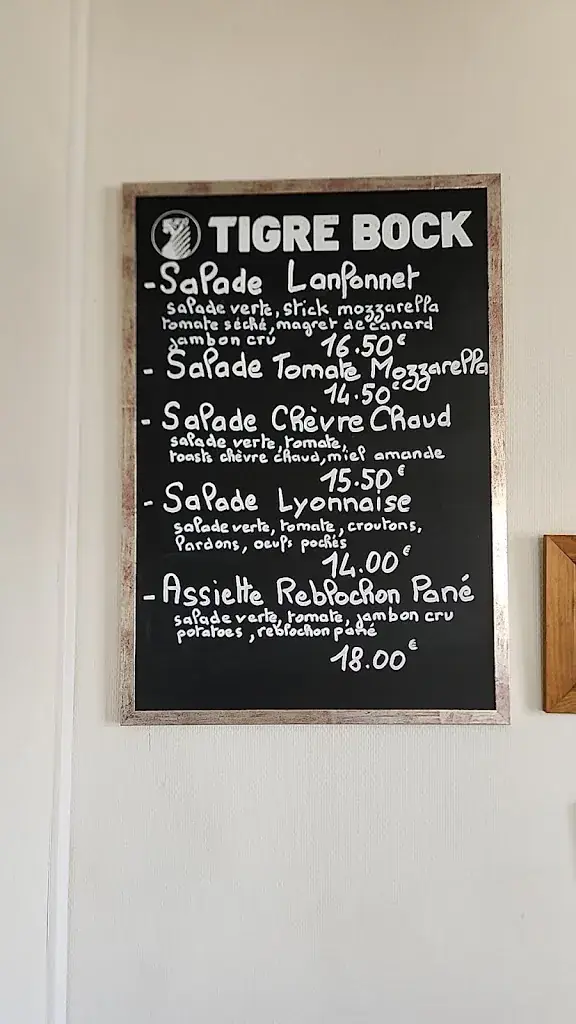 TIGRE BOCK
- Salade Lanfonnet
salade verte, stick mozzarella
tomate séché, magret de canard
jambon cru 16.50€
- Salade Tomate Mozzarella
14.50€
- Salade Chèvre Chaud
salade verte, tomate,
toasts chèvre chaud, miel amande
15.50€
- Salade Lyonnaise
salade verte, tomate, croutons,
lardons, oeufs pochés
14.00€
- Assiette Reblochon Pané
salade verte, tomate, jambon cru
potatoes, reblochon pané
18.00€